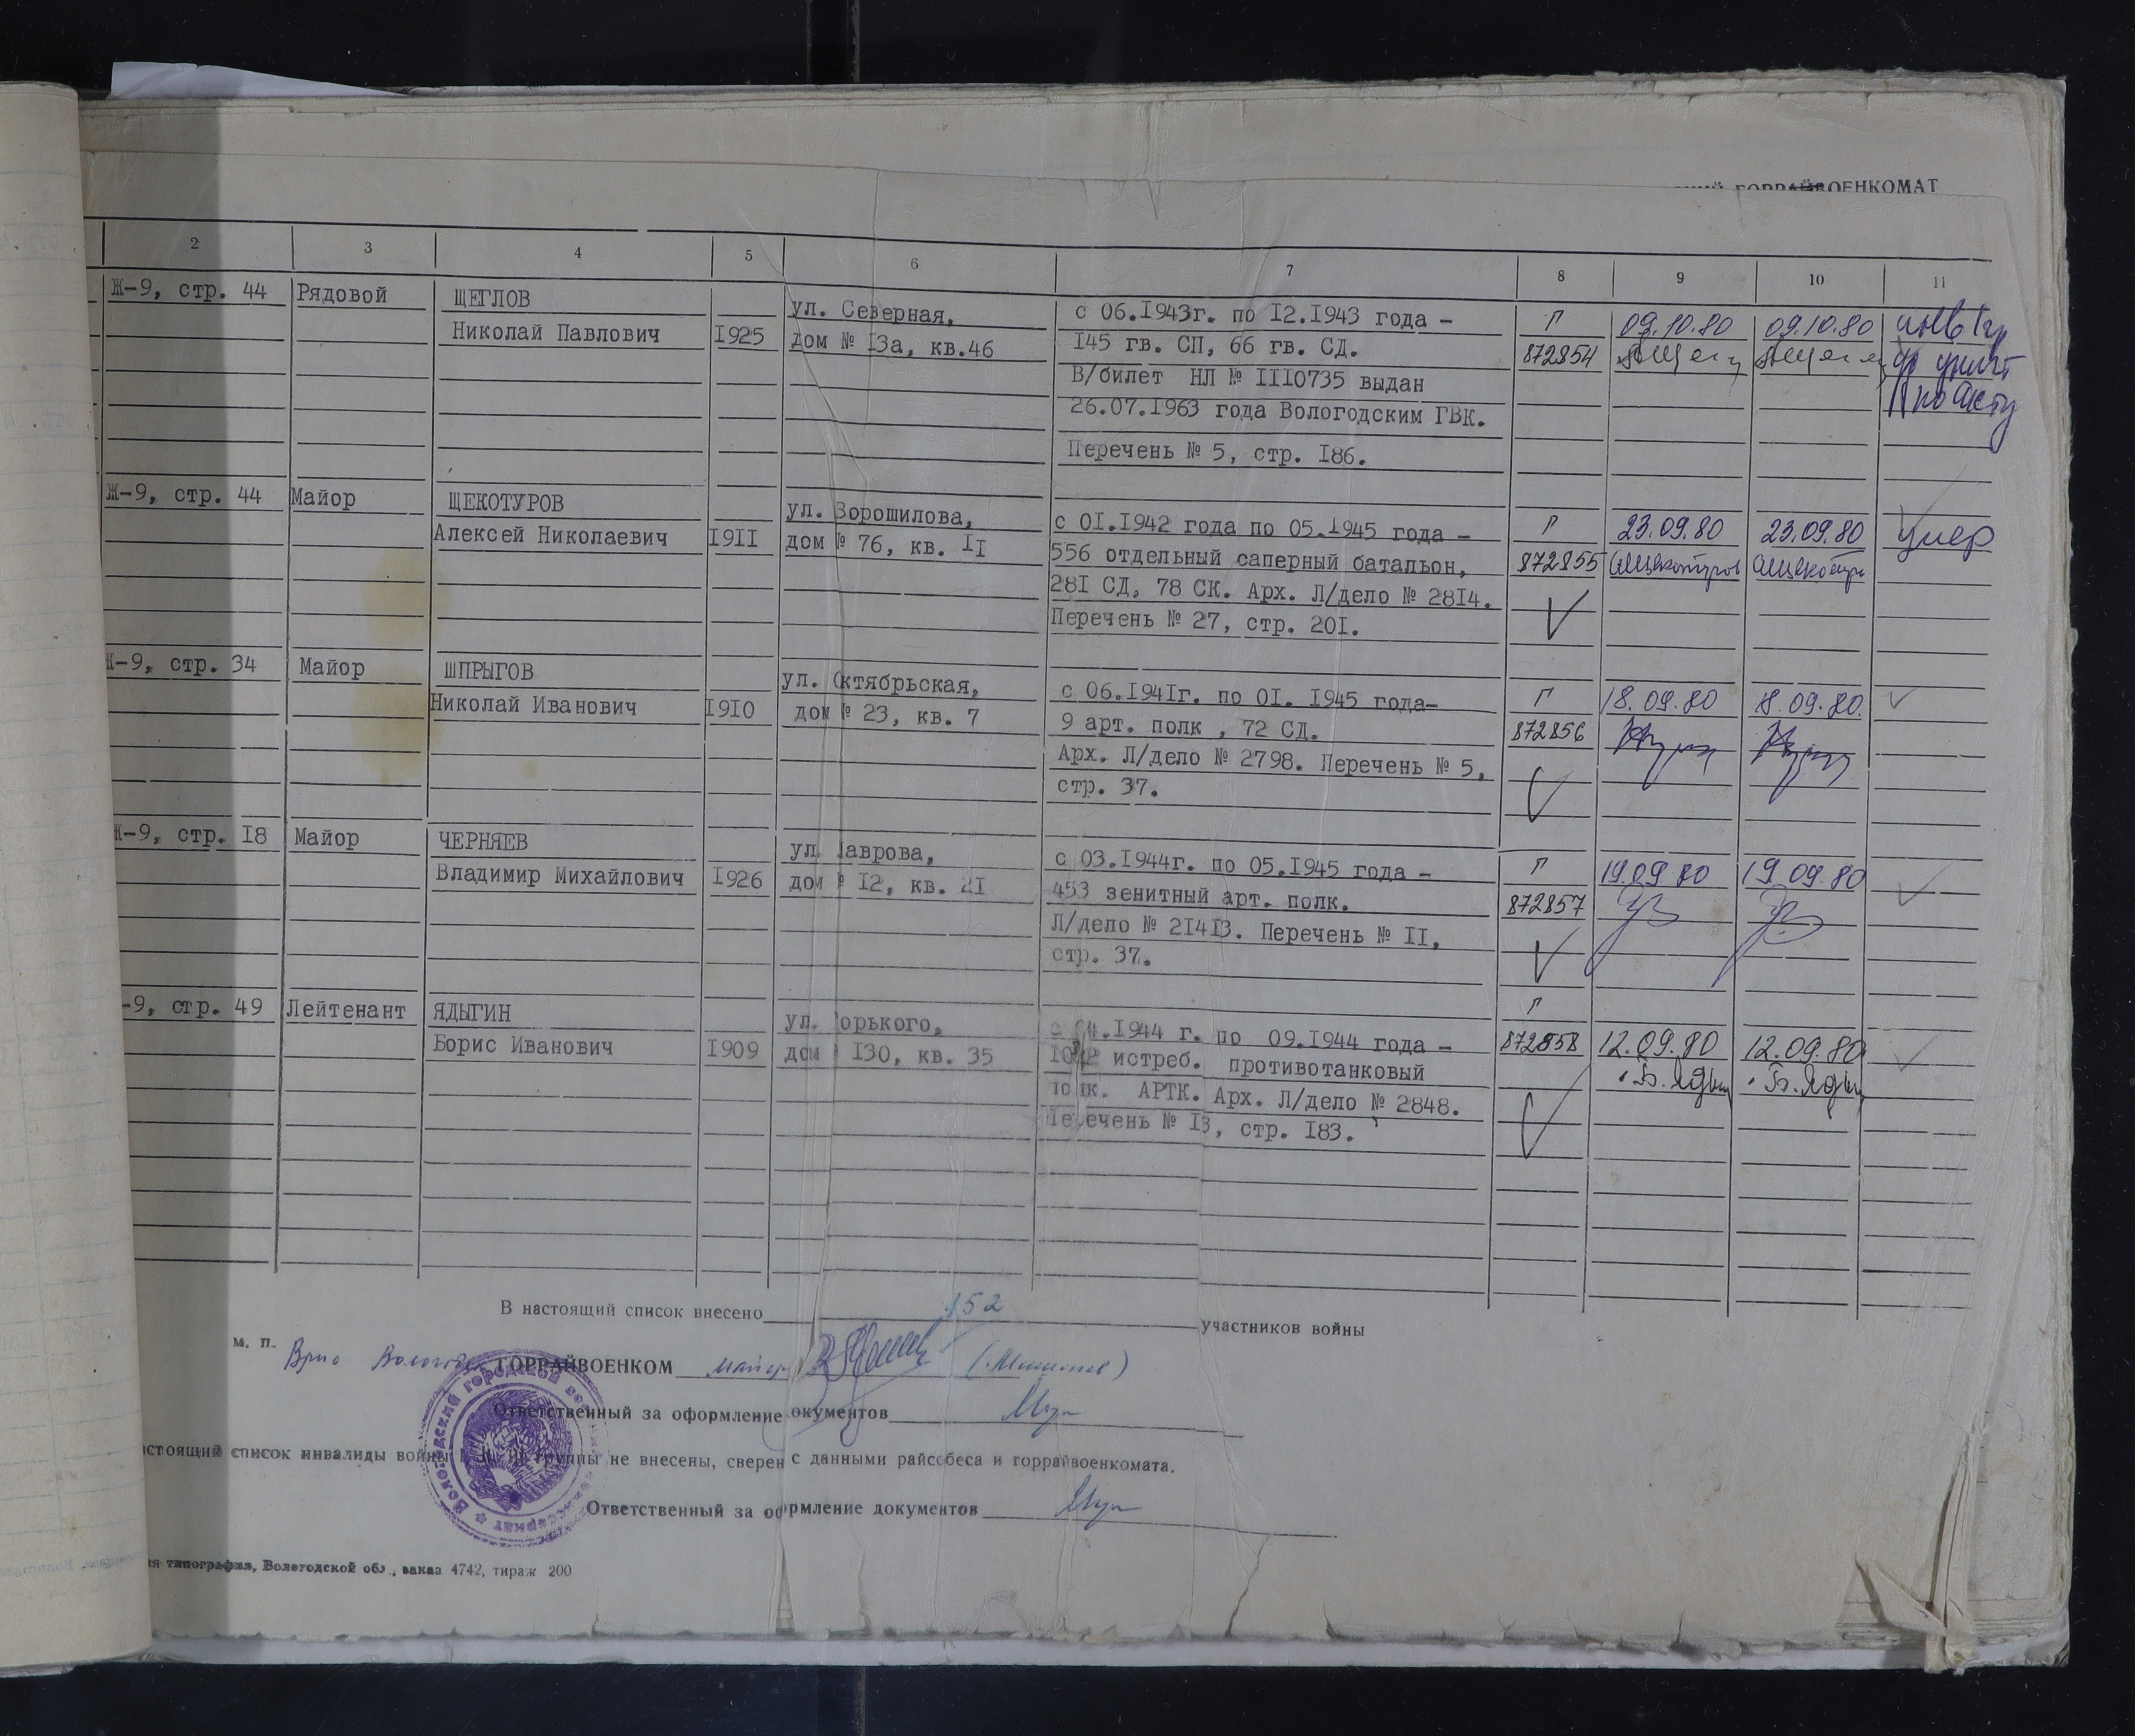 ГОРРАЙВОЕНКОМАТ
2 3 4 5 6 7 8 9 10 11
Ж-9, стр. 44 Рядовой ЩЕГЛОВ
Николай Павлович 1925
ул. Северная,
дом № 13а, кв.46
с 06.1943г. по 12.1943 года -
145 гв. СП, 66 гв. СД.
В/билет НЛ № 1110735 выдан
26.07.1963 года Вологодским ГВК.
Перечень № 5, стр. 186.
Г
872854
09.10.80 09.10.80
по акту
Ж-9, стр. 44 Майор ЩЕКОТУРОВ
Алексей Николаевич 1911
ул. Ворошилова,
дом № 76, кв. 11
с 01.1942 года по 05.1945 года -
556 отдельный саперный батальон,
281 СД, 78 СК. Арх. Л/дело № 2814.
Перечень № 27, стр. 201.
Г
872855
23.09.80 23.09.80
умер
Ж-9, стр. 34 Майор ШПРЫГОВ
Николай Иванович 1910
ул. Октябрьская,
дом № 23, кв. 7
с 06.1941г. по 01. 1945 года-
9 арт. полк , 72 СД.
Арх. Л/дело № 2798. Перечень № 5,
стр. 37.
Г
872856
18.09.80 18.09.80.
Ж-9, стр. 18 Майор ЧЕРНЯЕВ
Владимир Михайлович 1926
ул. Лаврова,
дом № 12, кв. 21
с 03.1944г. по 05.1945 года -
453 зенитный арт. полк.
Л/дело № 21413. Перечень № 11,
стр. 37.
Г
872857
19.09.80 19.09.80
-9, стр. 49 Лейтенант ЯДЫГИН
Борис Иванович 1909
ул. Горького,
дом 130, кв. 35
с 04.1944 г. по 09.1944 года -
истреб. противотанковый
полк. АРТК. Арх. Л/дело № 2848.
Перечень № 13, стр. 183.
Г
872858
12.09.80 12.09.80
В настоящий список внесено 152 участников войны
м. п.
Врио Вологодск ГОРРАЙВОЕНКОМ майор
Ответственный за оформление документов
настоящий список инвалиды войны группы не внесены, сверен с данными райсобеса и горрайвоенкомата.
Ответственный за оформление документов
типография, Вологодской обл., заказ 4742, тираж 200